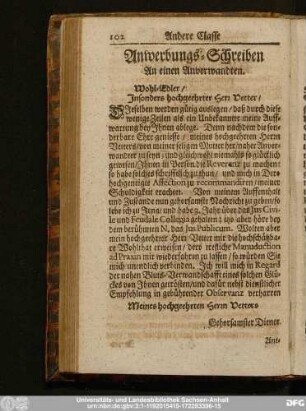 102 Andere Classe
Anwerbungs-Schreiben
An einen Anverwandten.
Wohl-Edler /
Insonders hochgeehrter Herr Vetter /
Dieselben werden gütig auslegen / daß durch diese
wenige Zeilen als ein Unbekannter meine Auff-
wartung bey Ihnen ablege. Denn nachdem die sonder-
bare Ehr geniesse / meines hochgeehrten Herrn
Vetters, von meiner seligen Mutter her / naher Anver-
wandter zu seyn / und gleichwohl niemahls so glücklich
gewesen / Ihnen in Person die Reverenz zu machen /
so habe solches schrifftlich zu thun / und mich in Dero
hochgeneigte Affection zu recommandiren / meiner
Schuldigkeit erachtet. Von meinem Auffenthalt
und Zustande nun gehorsamste Nachricht zu geben / so
lebe ich zu Jena / und habe Jahr über das Jus Civi-
le und Feudale Collegia gehalten / itzo aber höre bey
dem berühmten N. das Jus Publicum. Wolten aber
mein hochgeehrter Herr Vetter mir die hochschätzba-
re Wohlthat erweisen / dero
ad Praxin mir wiederfahren zu lassen / so würden Sie
mich unendlich verbinden. Ich will mich in Regard
der nahen Bluts-Verwandschafft eines solchen Glü-
ckes von Ihnen getrösten / und dafür nebst dienstlicher
Empfehlung in gebührender Observanz verharren
Meines hochgeehrten Herrn Vetters
Gehorsamster Diener.
Ant-
Universitäts- und Landesbibliothek Sachsen-Anhalt
urn:nbn:de:gbv:3:1-1192015415-172283396-15
DFG